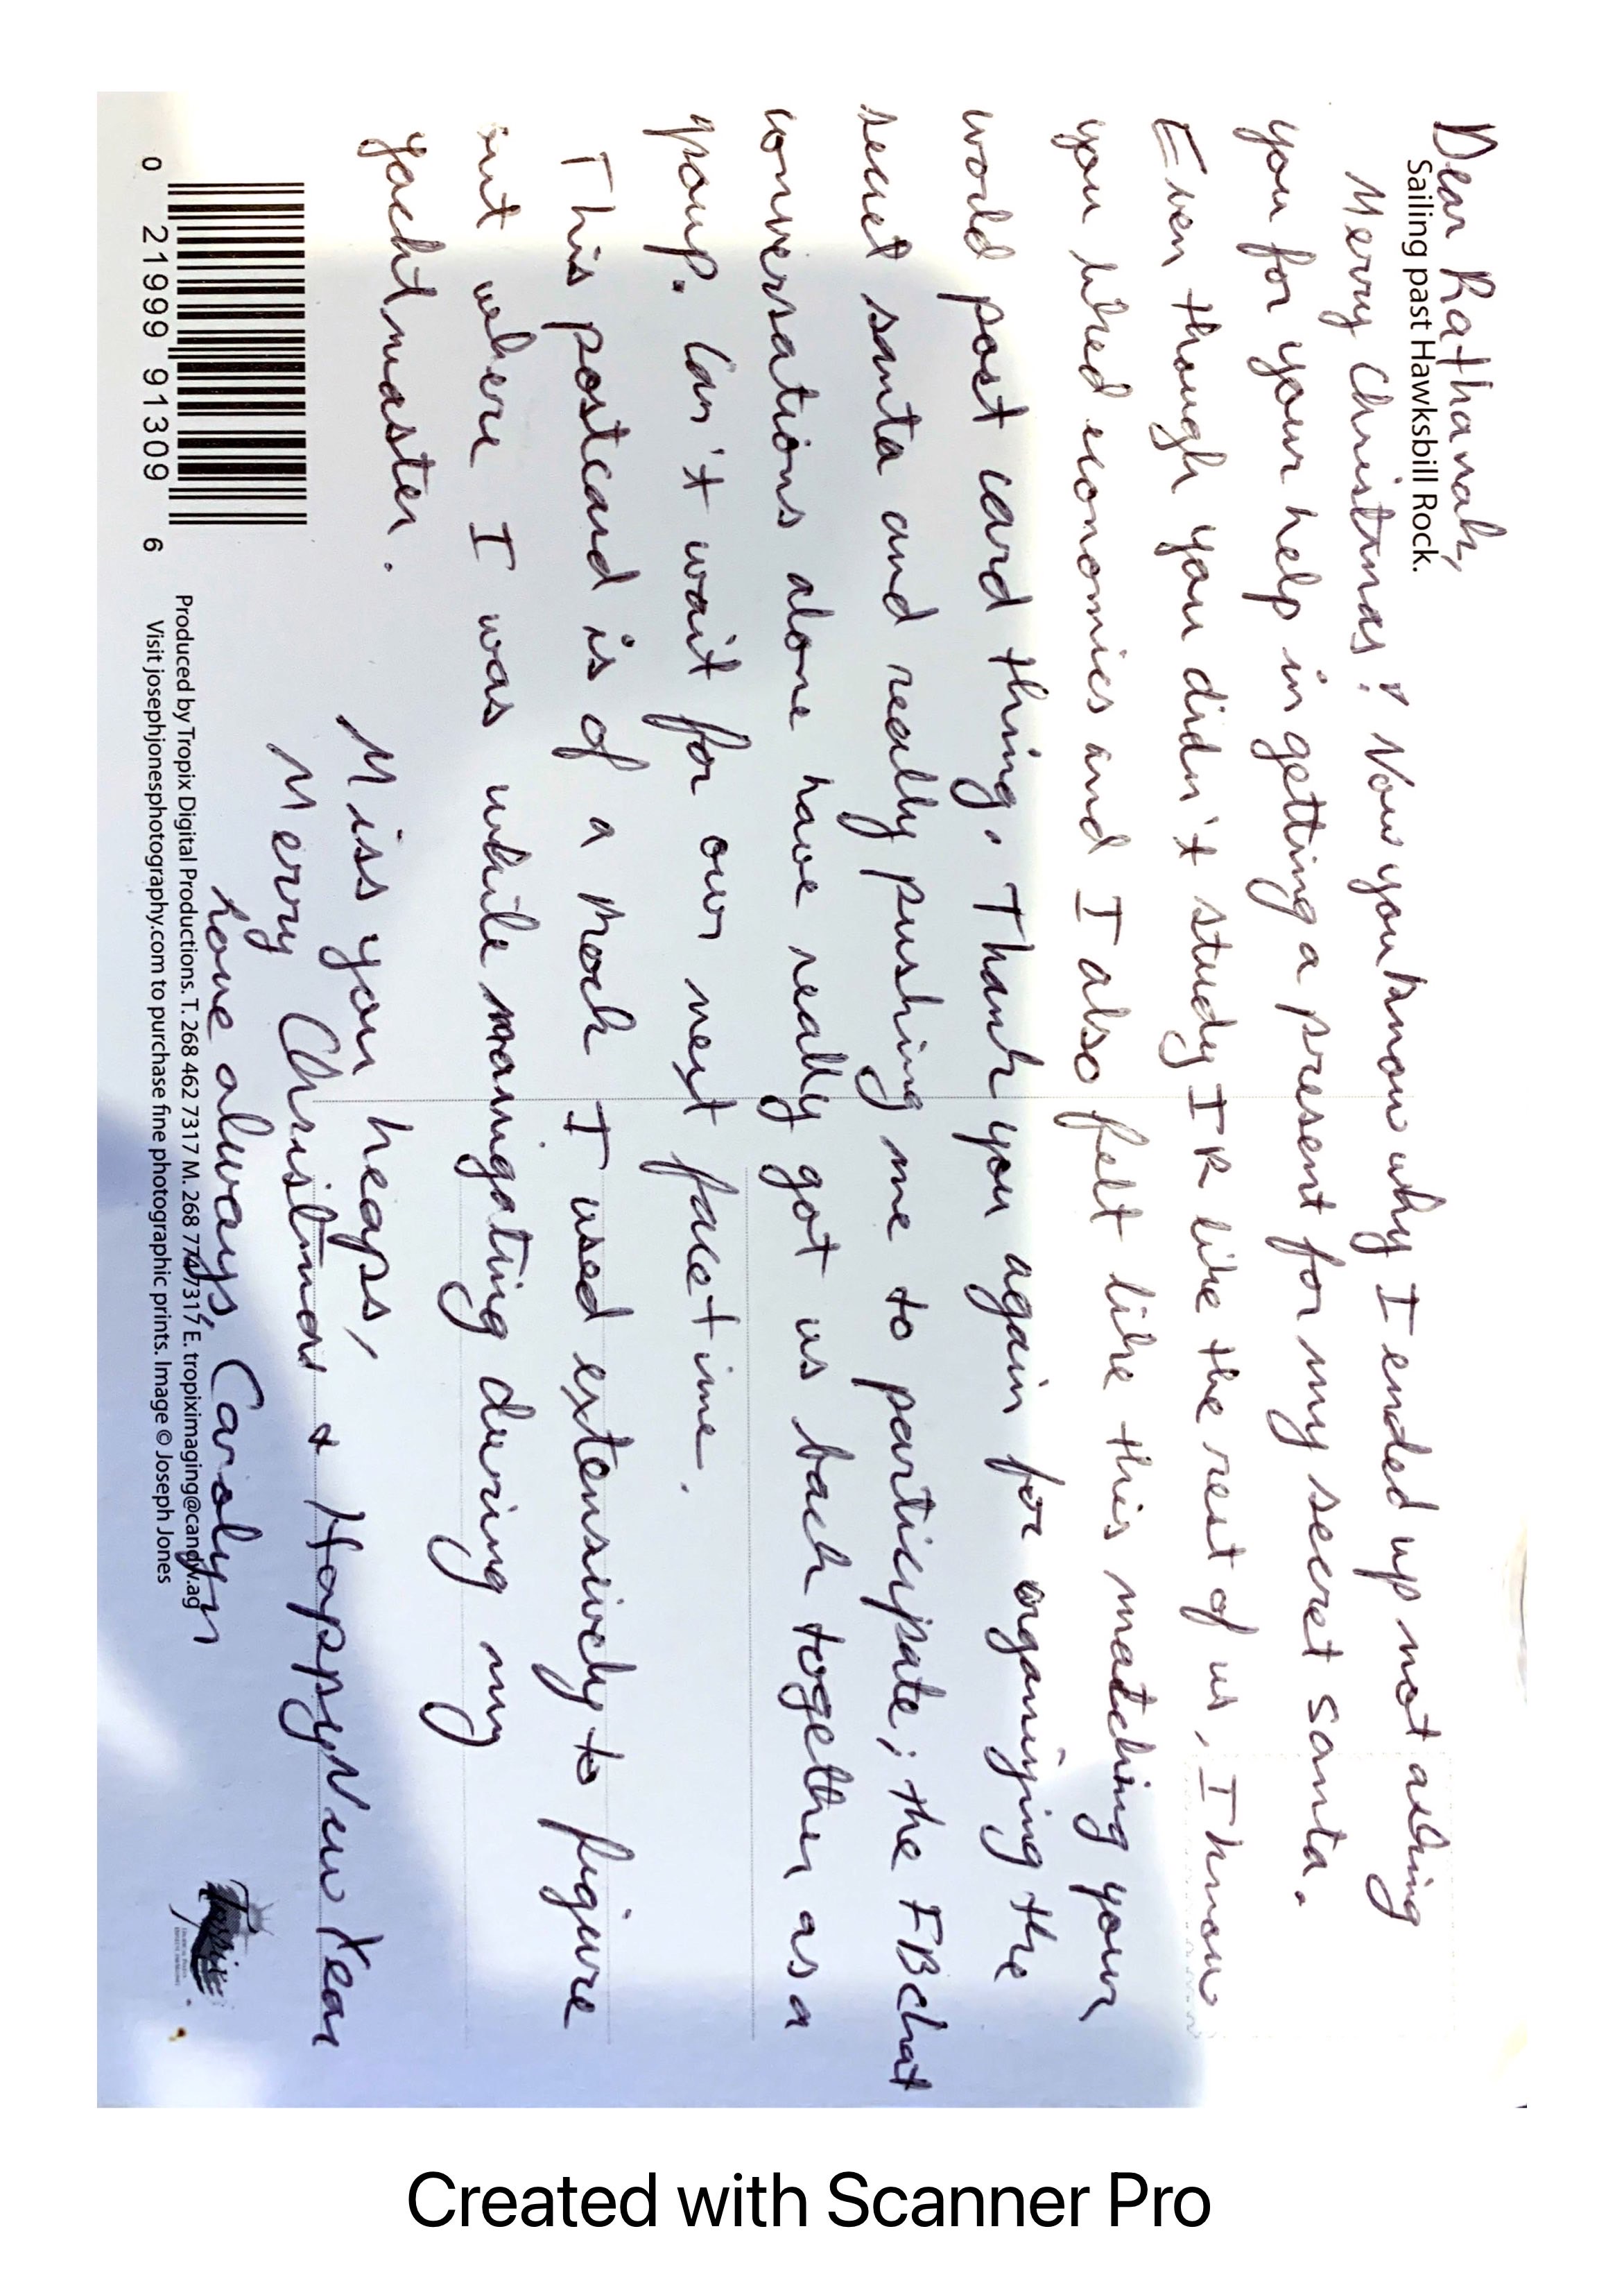 Dear Rathanak,
Sailing past Hawksbill Rock.
Merry Christmas! Now you know why I ended up not asking
you for your help in getting a present for my secret santa.
Even though you didn't study IR like the rest of us, I know
you liked economics and I also felt like this matching your
world post card thing. Thank you again for organizing the
secret santa and really pushing me to participate; the FB chat
conversations alone have really got us back together as a
group. Can't wait for our next facetime.
This postcard is of a rock I used extensively to figure
out where I was while navigating during my
yachtmaster.
Miss you heaps,
Merry Christmas & Happy New Year
Love always, Carolyn
0 21999 91309 6
Produced by Tropix Digital Productions. T. 268 462 7317 M. 268 7317 E. tropiximaging@candw.ag
Visit josephjonesphotography.com to purchase fine photographic prints. Image © Joseph Jones
Tropix
Created with Scanner Pro